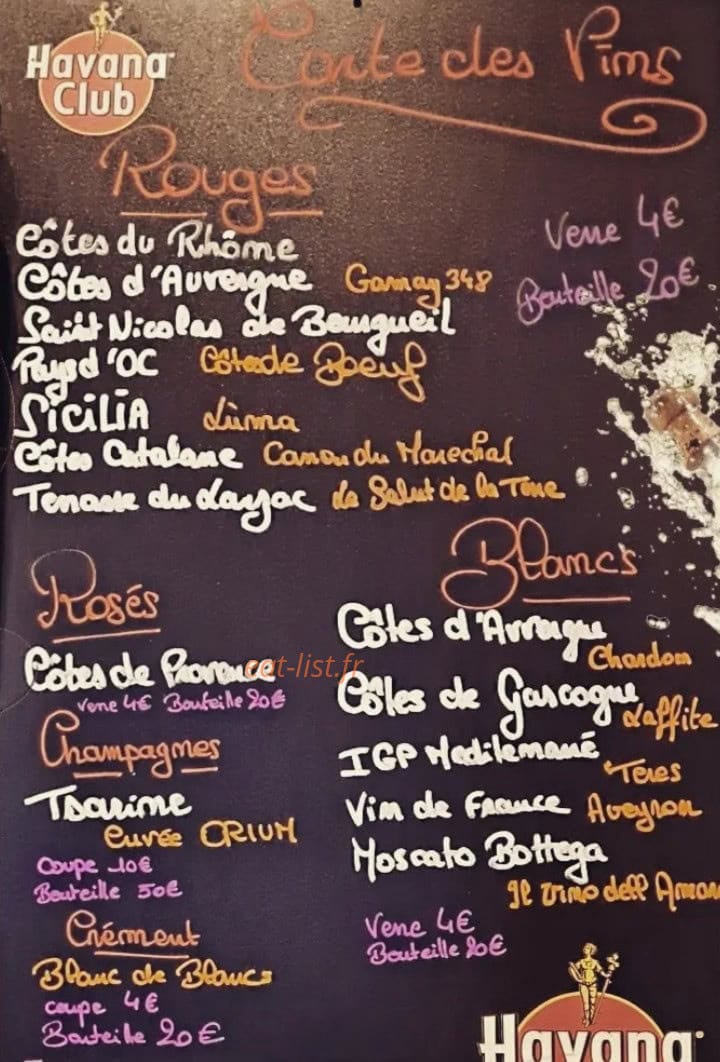 Havana
Club
Carte des Vins
Rouges
Verre 4€
Bouteille 20€
Côtes du Rhône
Côtes d'Auvergne Gamay 348
Saint Nicolas de Bourgueil
Pays d'OC Côtes de Boeuf
SiciliA Luma
Côtes Catalane Canon du Maréchal
Terrasse du Larzac Le Salut de la Terre
Rosés
Côtes de Provence
Verre 4€ Bouteille 20€
eat-list.fr
Champagnes
Tsarine
Cuvée ORIUM
Coupe 10€
Bouteille 50€
Crément
Blanc de Blancs
coupe 4€
Bouteille 20€
Blancs
Côtes d'Auvergne
Chardon
Côtes de Gascogne
Laffite
IGP Mediterrané
Teres
Vin de France Aveyron
Moscato Bottega
Il Vino dell Amor
Verre 4€
Bouteille 20€
Havana